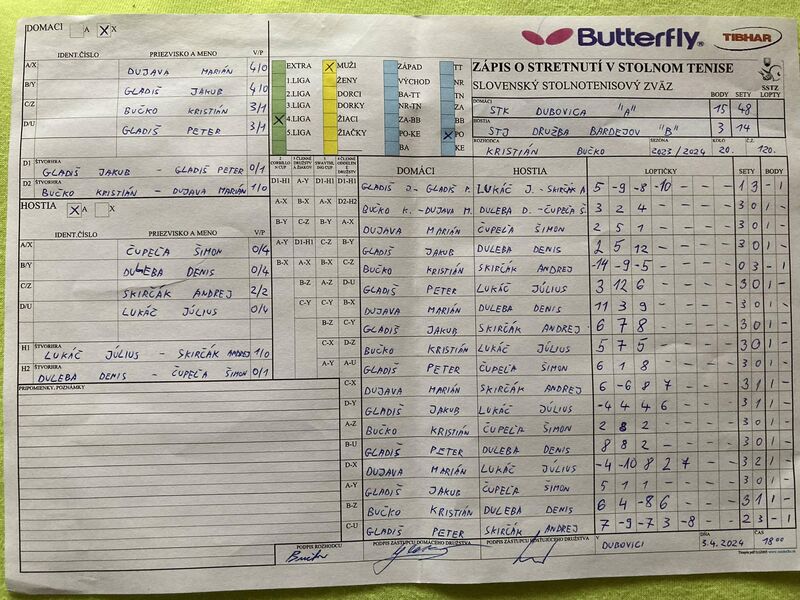 DOMACI A X
IDENT.ČÍSLO PRIEZVISKO A MENO V/P
A/X DUJAVA MARIÁN 4/0
B/Y GLADIŠ JAKUB 4/0
C/Z BUČKO KRISTIÁN 3/1
D/U GLADIŠ PETER 3/1
D1 ŠTVORHRA GLADIŠ JAKUB - GLADIŠ PETER 0/1
D2 ŠTVORHRA BUČKO KRISTIÁN - DUJAVA MARIÁN 1/0
HOSTIA X A X
IDENT.ČÍSLO PRIEZVISKO A MENO V/P
A/X ČUPEĽA ŠIMON 0/4
B/Y DULEBA DENIS 0/4
C/Z SKIRČÁK ANDREJ 2/2
D/U LUKÁČ JÚLIUS 0/4
H1 ŠTVORHRA LUKÁČ JÚLIUS - SKIRČÁK ANDREJ 1/0
H2 ŠTVORHRA DULEBA DENIS - ČUPEĽA ŠIMON 0/1
PRIPOMIENKY, POZNÁMKY
Butterfly TIBHAR
EXTRA MUŽI ZÁPAD TT
1.LIGA ŽENY VÝCHOD NR
2.LIGA DORCI BA-TT TN
3.LIGA DORKY NR-TN ZA
4.LIGA ŽIACI ZA-BB BB
5.LIGA ŽIAČKY PO-KE PO
BA KE
ZÁPIS O STRETNUTÍ V STOLNOM TENISE
SLOVENSKÝ STOLNOTENISOVÝ ZVÄZ SSTZ
DOMÁCI BODY SETY LOPTY
STK DUBOVICA "A" 15 48
HOSTIA
STJ DRUŽBA BARDEJOV "B" 3 14
ROZHODCA SEZÓNA KOLO Č.
KRISTIÁN BUČKO 2023/2024 20. 120.
DOMÁCI HOSTIA LOPTIČKY SETY BODY
D1-H1 A-Y D1-H1 D1-H1 GLADIŠ J - GLADIŠ P. LUKÁČ J. - SKIRČÁK A 5 -9 -8 -10 - - - 1 3 - 1
A-X B-X A-X D2-H2 BUČKO K. - DUJAVA M. DULEBA D. - ČUPEĽA Š. 3 2 4 - - - - 3 0 1 -
B-Y C-Z B-Y A-X DUJAVA MARIÁN ČUPEĽA ŠIMON 2 5 1 - - - - 3 0 1 -
A-Y D1-H1 C-Z B-Y GLADIŠ JAKUB DULEBA DENIS 2 5 12 - - - - 3 0 1 -
B-X A-X B-X C-Z BUČKO KRISTIÁN SKIRČÁK ANDREJ -14 -9 -5 - - - - 0 3 - 1
B-Z A-Z D-U GLADIŠ PETER LUKÁČ JÚLIUS 3 12 6 - - - - 3 0 1 -
C-Y C-Y B-X DUJAVA MARIÁN DULEBA DENIS 11 3 9 - - - - 3 0 1 -
B-Z C-Y GLADIŠ JAKUB SKIRČÁK ANDREJ 6 7 8 - - - - 3 0 1 -
C-X D-Z BUČKO KRISTIÁN LUKÁČ JÚLIUS 5 7 5 - - - - 3 0 1 -
A-Y A-U GLADIŠ PETER ČUPEĽA ŠIMON 6 1 8 - - - - 3 0 1 -
C-X DUJAVA MARIÁN SKIRČÁK ANDREJ 6 -6 8 7 - - - 3 1 1 -
D-Y GLADIŠ JAKUB LUKÁČ JÚLIUS -4 4 4 6 - - - 3 1 1 -
A-Z BUČKO KRISTIÁN ČUPEĽA ŠIMON 2 8 2 - - - - 3 0 1 -
B-U GLADIŠ PETER DULEBA DENIS 8 8 2 - - - - 3 0 1 -
D-X DUJAVA MARIÁN LUKÁČ JÚLIUS -4 -10 8 2 7 - - 3 2 1 -
A-Y GLADIŠ JAKUB ČUPEĽA ŠIMON 5 1 1 - - - - 3 0 1 -
B-Z BUČKO KRISTIÁN DULEBA DENIS 6 4 -8 6 - - - 3 1 1 -
C-U GLADIŠ PETER SKIRČÁK ANDREJ 7 -9 -7 3 -8 - - 2 3 - 1
PODPIS ROZHODCU PODPIS ZÁSTUPCU DOMÁCEHO DRUŽSTVA PODPIS ZÁSTUPCU HOSŤUJÚCEHO DRUŽSTVA V DŇA ČAS
Bučko DUBOVICI 3.4.2024 18 00